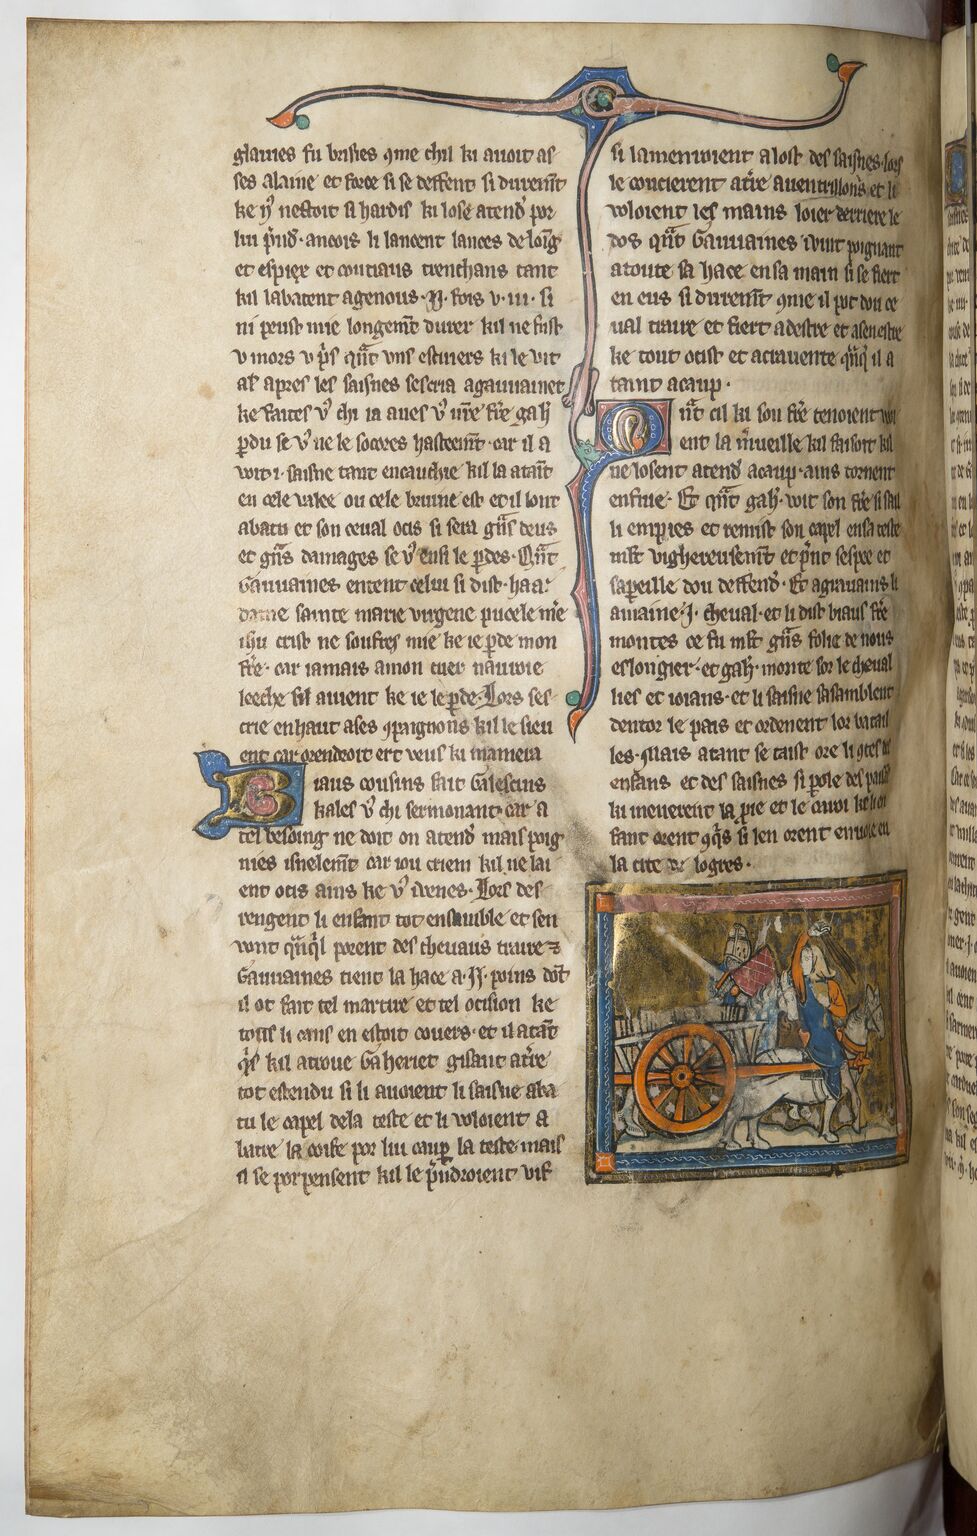 glaiues fu brisies 9me chil ki auoit as
ses alaine et force si se deffent si durem̄t
ke nꝰ nestoit si hardis ki lose atend̓ por
lui p̄nd̓ · ancois li lancent lances de loīg
et espiex et coutiaus trenchans tant
kil labatent agenous · ij · fois v · iii · si
ni peust mie longem̄t durer kil ne fust
v mors v p̓s q̄nt vns esciuers ki le vit
al̓ apres les saisnes sescria agauuainet
ke faites vꝰ chi ia aues vꝰ ur̄e fr̄e gah̓
ꝑdu se vꝰ ne le socores hasteem̄t · car il a
voit · i · saisne tant encauchie kil la atāīt
en cele valee ou cele brume est et il lont
abatu et son ceual ocis si sera gn̄s deus
et gn̄s damages se vꝰ ensi le ꝑdes · Qn̄t
Gauuaines entent celui si dist · haa ·
dame sainte marie virgene pucele me̓
ihu crist ne soufres mie ke ie ꝑde mon
fr̄e · car iamais a mon cuer nauroie
leeche sil auient ke ie le ꝑde · Lors ses
crie en haut a ses 9paignons kil le sieu
ent car orendroit ert veus ki mamera
Biaus cousins fait Galescins
kales vꝰ chi sermonant · car a
tel besoing ne doit on atend̓ mais poig
nies isnelem̄t car iou criem kil ne lai
ent ocis ains ke vꝰ i venes · Lors des
rengent li enfant tot ensamble et sen
vont q̄nq̓l porent des cheuaus traire ⁊
Gauuaines tient la hace a · ij · poins dōt
il ot fait tel martire et tel ocision ke
tous li cans en estoit couers · et il atāt
q̓s kil a troue Gaheriet gisant a tr̄e
tot estendu si li auoient li saisne aba
tu le capel de la teste et li voloient a
batre la coife por lui cauꝑ la teste mais
il se porpensent kil le p̄ndroient vif
si lamenroient a lost des saisnes · lors
le coucierent a tr̄e a uentrillons et li
voloient les mains loier derriere le
dos q̄nt Gauuaines i vint poignant
a toute sa hace en sa main si se fiert
en eus si durem̄t 9me il pot dou ce
ual traire et fiert a destre et a senestre
ke tout ocist et acrauente q̄nq̓ il a
taint a caup ·
Qn̄t cil ki son fr̄e tenoient voi
ent la m̓ueille kil faisoit kil
ne losent atend̓ a caup · ains tornent
en fuie · Et qn̄t gah̓ · voit son fr̄e si sail
li em pies et remist son capel en sa teste
ml̄t vighereusem̄t et p̄nt sespee et
sapeille dou deffend̓ · Et agrauains li
amaine · i · cheual · et li dist biaus fr̄e
montes ce fu ml̄t gn̄s folie de nous
eslongier · et gah̓ · monte sor le cheual
lies et ioians · et li saisne sasamblent
dentor le pais et ordenent lor batail
les · Mais atant se taist ore li 9tes des
enfans et des saisnes si ꝑole des
ki meuerent la pie et le
fant orent 9q̓s si len orent
la cite de logres ·